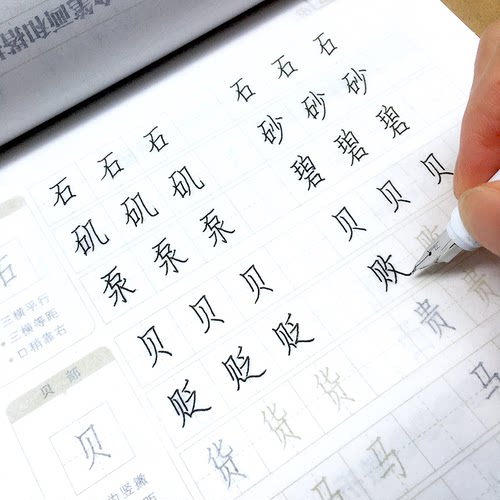 石 石 石 石 石 石
矶 矶 矶 砂 砂 砂
泵 泵 泵 碧 碧 碧
贝 贝 贝 贝 贝 贝
贬 贬 贬 败 败
货 货 货 贵 贵
马 马 马
石
三横平行
• 三横等距
• 口稍靠右
贝部
贝